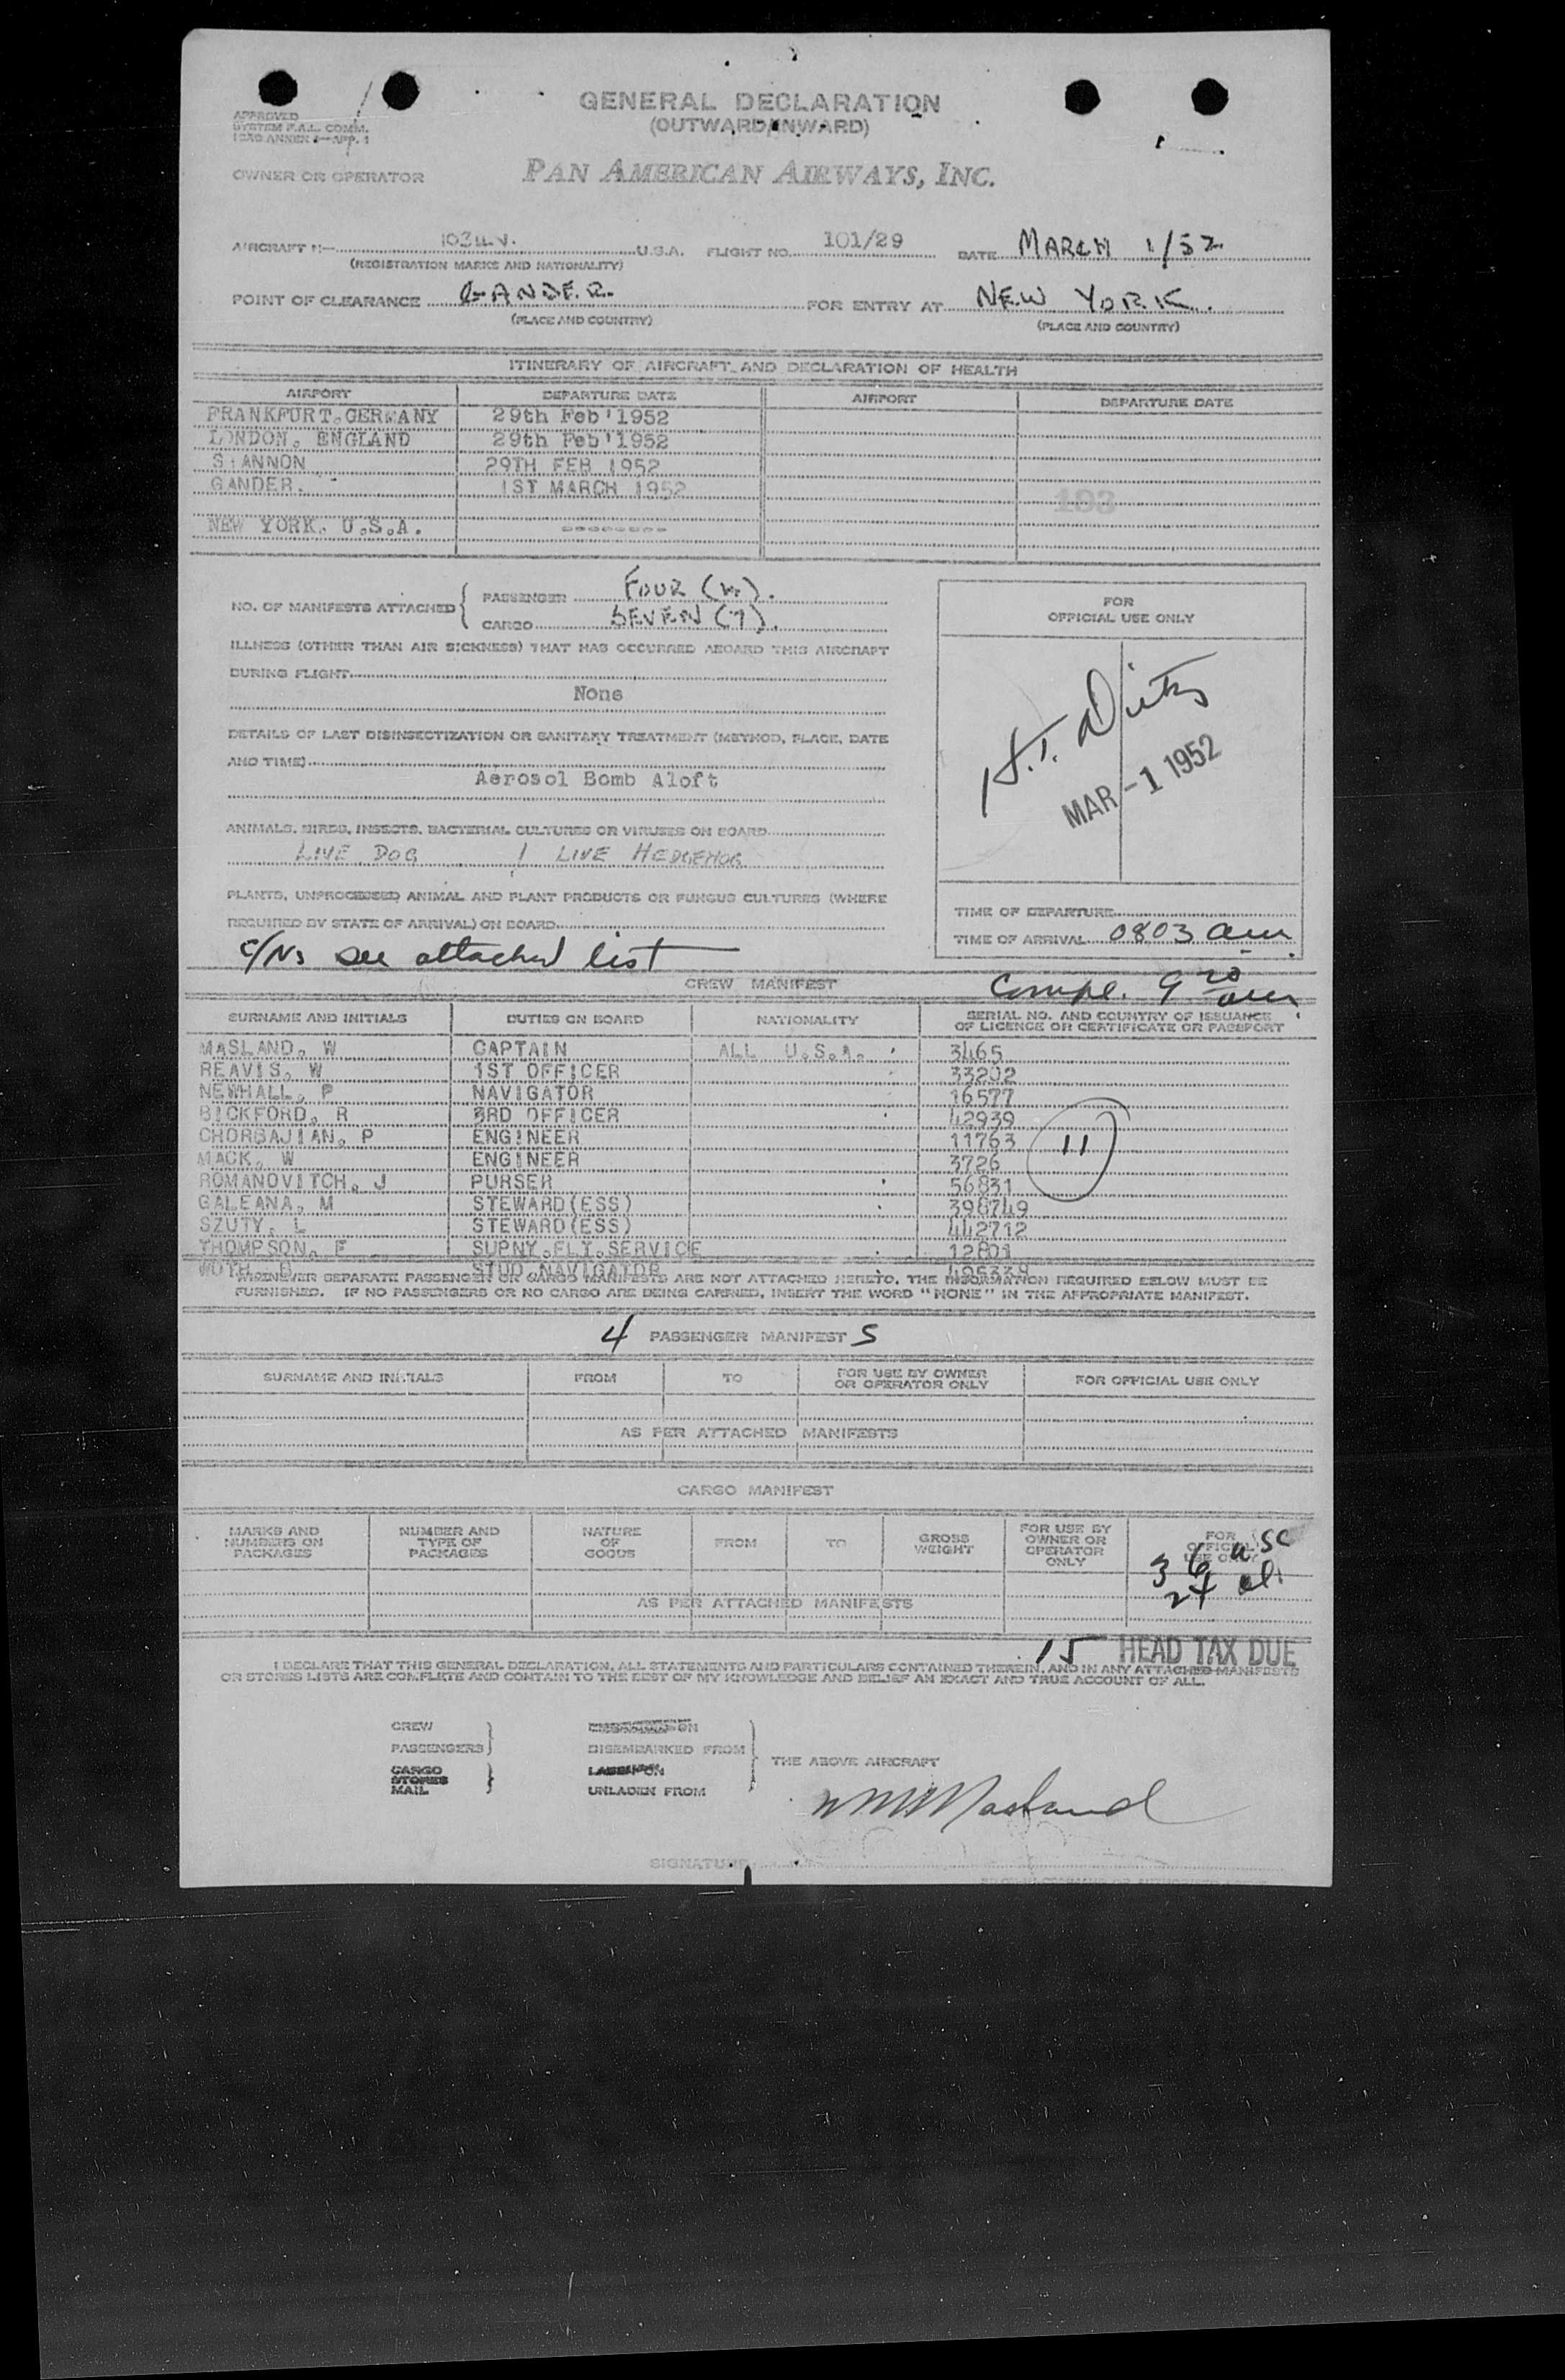 GENERAL DECLARATION
(OUTWARD/INWARD)
APPROVED
SYSTEM F.A.L. COMM.
ICAO ANNEX 9—APP. 1
OWNER OR OPERATOR PAN AMERICAN AIRWAYS, INC.
AIRCRAFT N— 1034V. U.S.A. FLIGHT NO. 101/29 DATE MARCH 1/52
(REGISTRATION MARKS AND NATIONALITY)
POINT OF CLEARANCE GANDER. FOR ENTRY AT NEW YORK.
(PLACE AND COUNTRY) (PLACE AND COUNTRY)
ITINERARY OF AIRCRAFT AND DECLARATION OF HEALTH
AIRPORT DEPARTURE DATE AIRPORT DEPARTURE DATE
FRANKFURT, GERMANY 29th Feb'1952
LONDON, ENGLAND 29th Feb'1952
S ANNON 29TH FEB 1952
GANDER. 1ST MARCH 1952
103
NEW YORK, U.S.A. --------
NO. OF MANIFESTS ATTACHED { PASSENGER FOUR (4).
CARGO SEVEN (7).
FOR
OFFICIAL USE ONLY
ILLNESS (OTHER THAN AIR SICKNESS) THAT HAS OCCURRED ABOARD THIS AIRCRAFT
DURING FLIGHT
None
H.T. Dietz
MAR -1 1952
DETAILS OF LAST DISINSECTIZATION OR SANITARY TREATMENT (METHOD, PLACE, DATE
AND TIME)
Aerosol Bomb Aloft
ANIMALS, BIRDS, INSECTS, BACTERIAL CULTURES OR VIRUSES ON BOARD
LIVE DOG 1 LIVE HEDGEHOG
PLANTS, UNPROCESSED ANIMAL AND PLANT PRODUCTS OR FUNGUS CULTURES (WHERE
REQUIRED BY STATE OF ARRIVAL) ON BOARD
TIME OF DEPARTURE
TIME OF ARRIVAL 0803 am
see attached list
CREW MANIFEST
Compl. 9 20 am
SURNAME AND INITIALS DUTIES ON BOARD NATIONALITY SERIAL NO. AND COUNTRY OF ISSUANCE
OF LICENCE OR CERTIFICATE OR PASSPORT
MASLAND, W CAPTAIN ALL U.S.A. 3465
REAVIS, W 1ST OFFICER 33202
NEWHALL, P NAVIGATOR 16577
BICKFORD, R 3RD OFFICER 42939
CHORBAJIAN, P ENGINEER 11763 11
MACK, W ENGINEER 3726
ROMANOVITCH, J PURSER 56831
GALEANA, M STEWARD(ESS) 398749
SZUTY, L STEWARD(ESS) 442712
THOMPSON, F SUPNY.FLT.SERVICE 12801
STUD NAVIGATOR
WHENEVER SEPARATE PASSENGER OR CARGO MANIFESTS ARE NOT ATTACHED HERETO, THE INFORMATION REQUIRED BELOW MUST BE
FURNISHED. IF NO PASSENGERS OR NO CARGO ARE BEING CARRIED, INSERT THE WORD "NONE" IN THE APPROPRIATE MANIFEST.
4 PASSENGER MANIFESTS
SURNAME AND INITIALS FROM TO FOR USE BY OWNER
OR OPERATOR ONLY FOR OFFICIAL USE ONLY
AS PER ATTACHED MANIFESTS
CARGO MANIFEST
MARKS AND
NUMBERS ON
PACKAGES NUMBER AND
TYPE OF
PACKAGES NATURE
OF
GOODS FROM TO GROSS
WEIGHT FOR USE BY
OWNER OR
OPERATOR
ONLY FOR
OFFICIAL
USE ONLY
36 usc
24 al
AS PER ATTACHED MANIFESTS
15 HEAD TAX DUE
I DECLARE THAT THIS GENERAL DECLARATION, ALL STATEMENTS AND PARTICULARS CONTAINED THEREIN, AND IN ANY ATTACHED MANIFESTS
OR STORES LISTS ARE COMPLETE AND CONTAIN TO THE BEST OF MY KNOWLEDGE AND BELIEF AN EXACT AND TRUE ACCOUNT OF ALL.
CREW
PASSENGERS } DISEMBARKED FROM
CARGO
STORES
MAIL } LADEN ON
UNLADEN FROM
THE ABOVE AIRCRAFT
WM Masland
SIGNATURE